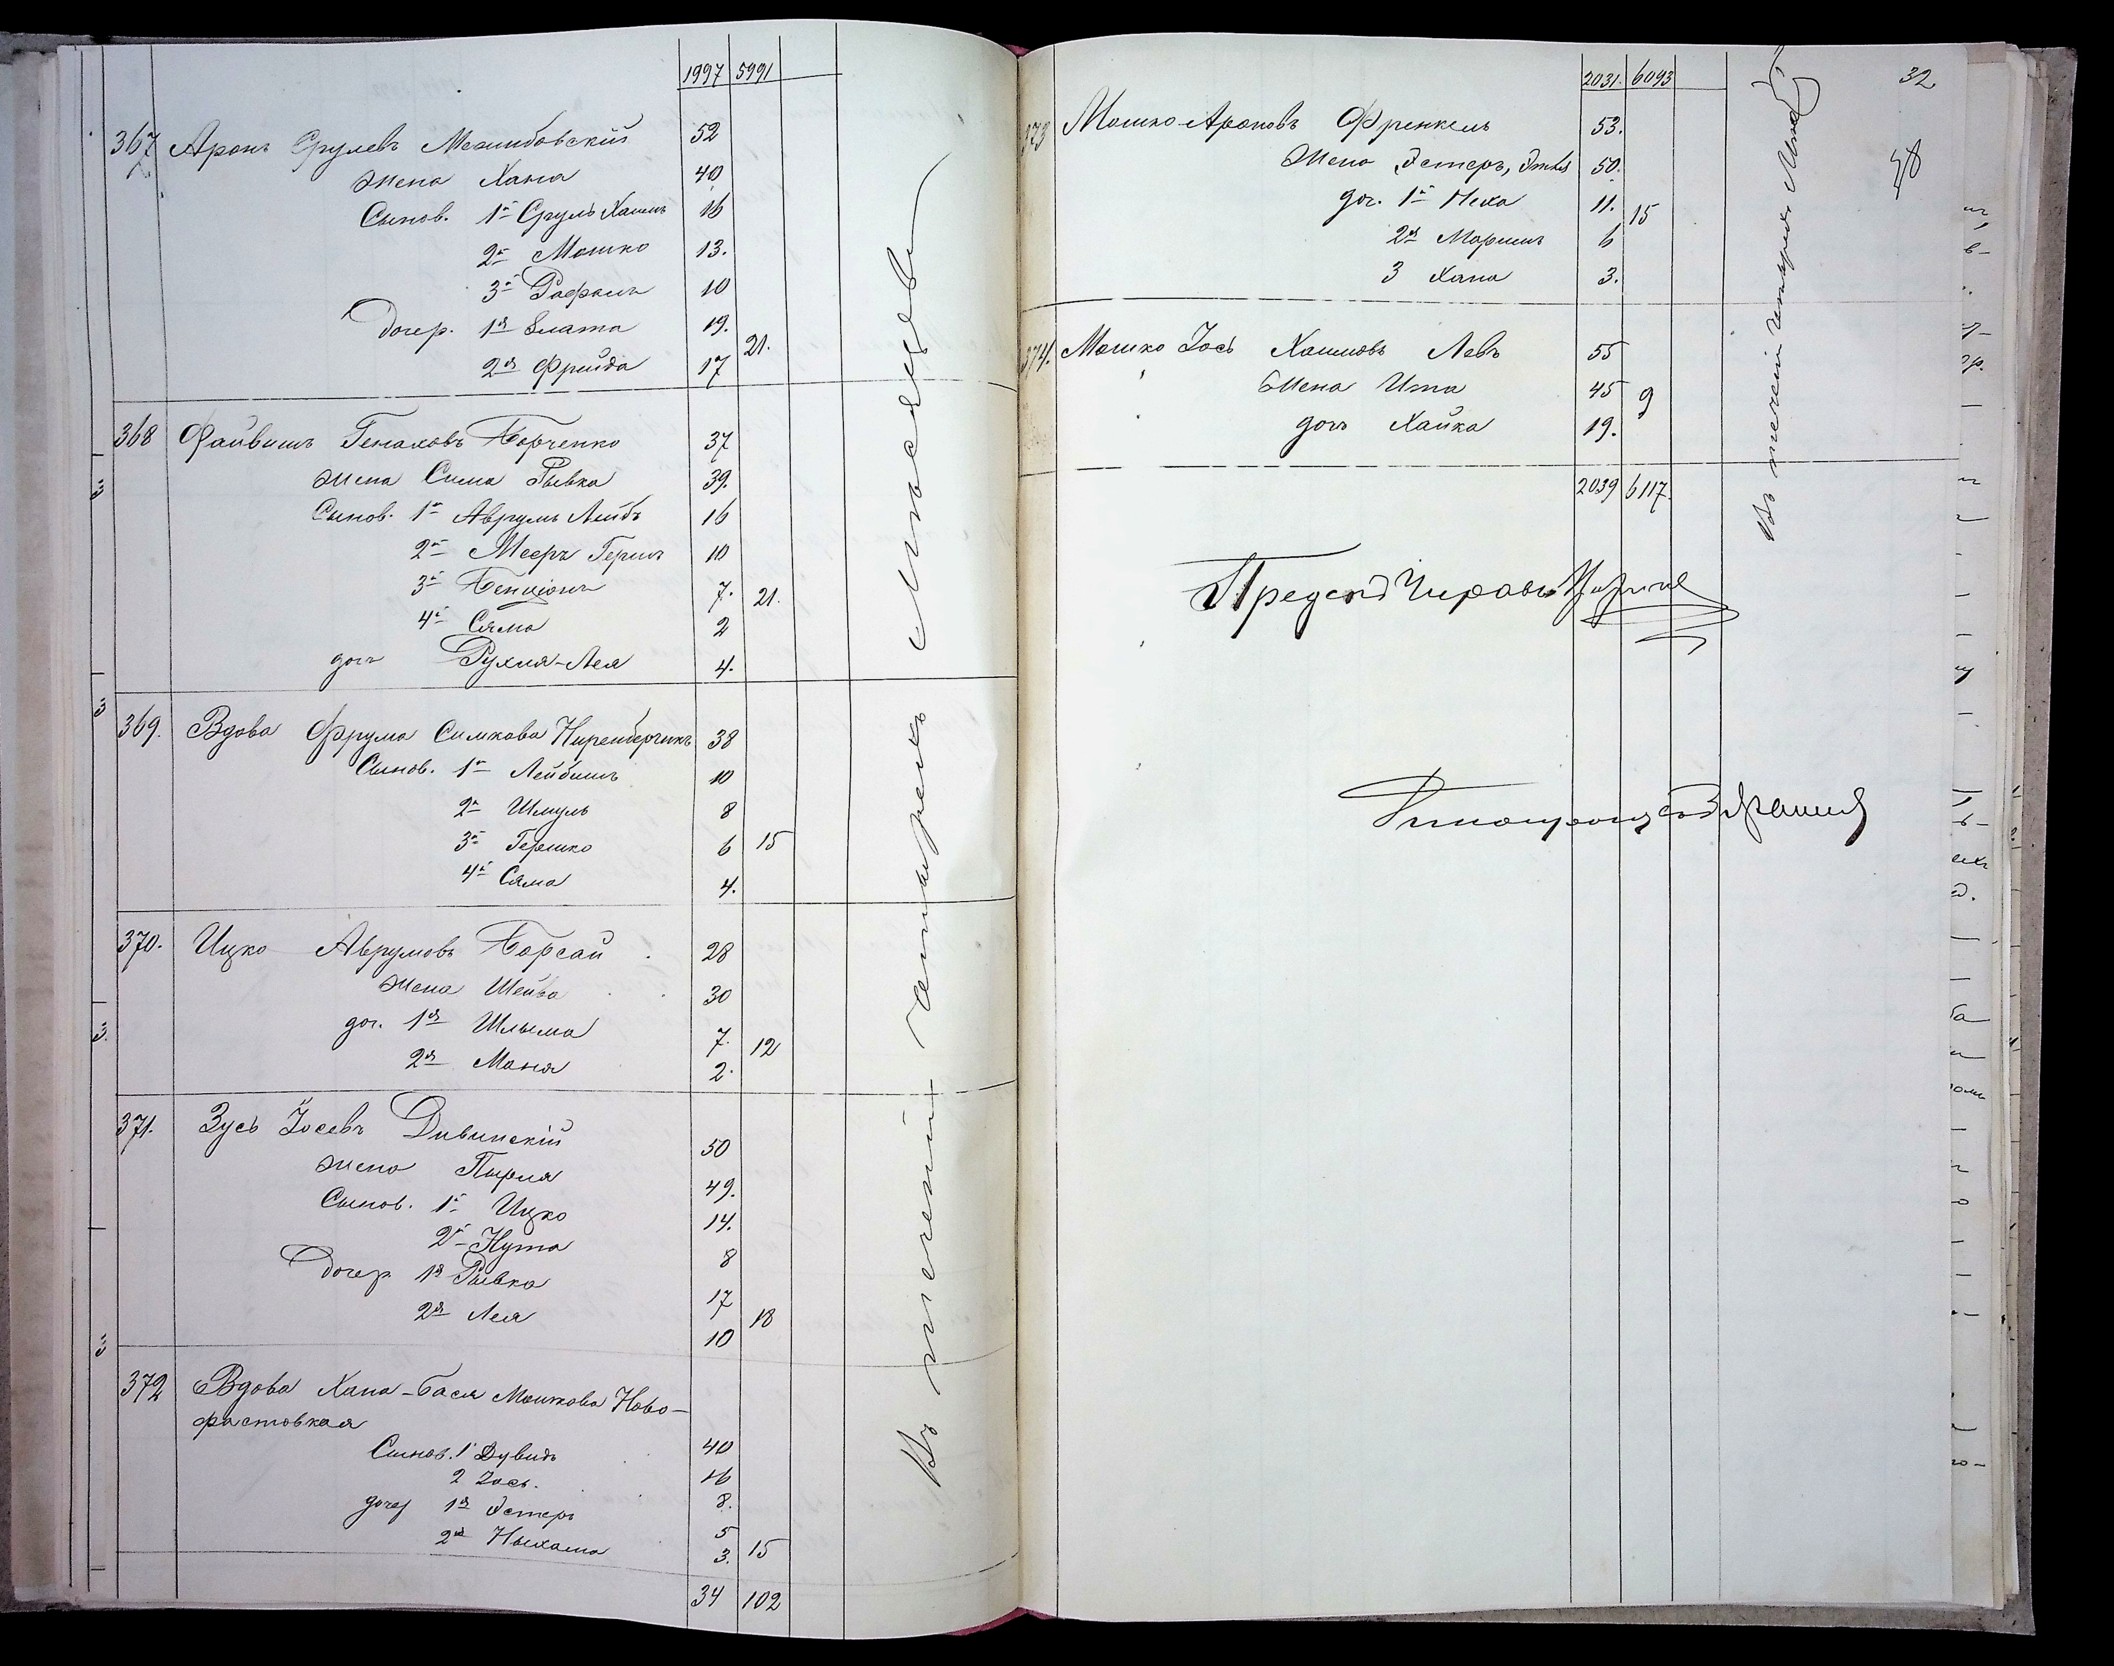 1997 5991
367 Аронъ Срулевъ Межибовскій 52
жена Хана 40
Сынов. 1й Сруль Хаимъ 16
2й Мошко 13.
3й Рафаилъ 10
Дочер. 1я Злата 19.
21.
2я Фрейда 17
368 Файвишъ Генаховъ Борченко 37
жена Сима Рывка 39.
Сынов. 1й Аврумъ Лейбъ 16
2й Мееръ Гершъ 10
3й Бенціонъ 7. 21.
4й Сяма 2
дочь Рухля-Лея 4.
369. Вдова Фрума Симхова Ниренберчикъ 38
Сынов. 1й Лейбишъ 10
2й Шмуль 8
3й Гершко 6 15
4й Сяма 4.
370. Ицко Аврумовъ Борсай 28
жена Шейва 30
доч. 1я Шлыма 7. 12
2я Маня 2.
371. Зусь Іосевъ Дивинскій 50
жена Пырля 49.
Сынов. 1й Ицко 14.
2й Нута 8
Дочер. 1я Рывка 17
2я Лея 10 18
372 Вдова Хана-Бася Мошкова Ново-
фастовская 40
Сынов. 1 Дувидъ 16
2 Іось. 8.
дочер 1я Эстеръ 5
2я Ныхама 3. 15
34 102
Въ теченіи четырехъ мѣсяцевъ
2031. 6093
32
373 Мошко Ароновъ Френкель 53.
жена Эстеръ, Этля 50.
доч. 1я Неха 11. 15
2я Маримъ 6
3 Хана 3.
374. Мошко Іось Хаимовъ Левъ 55
жена Ита 45 9
дочь Хайка 19.
2039 6117.
Въ теченіи четырехъ